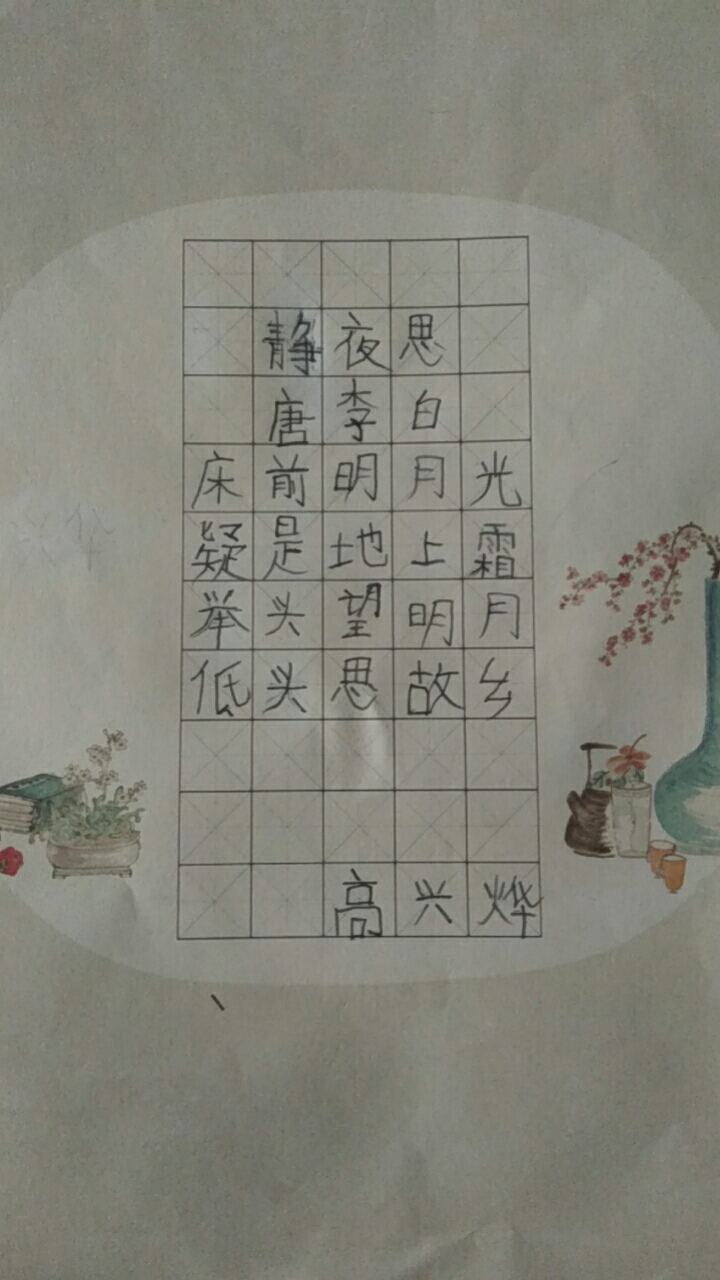 静夜思
唐李白
床前明月光
疑是地上霜
举头望明月
低头思故乡
高兴烨